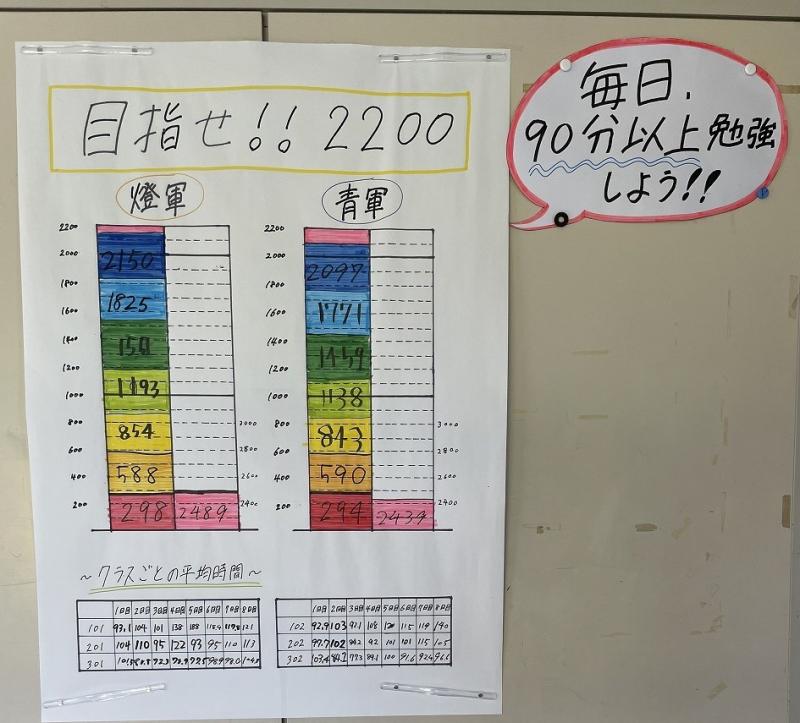 目指せ!! 2200
毎日、
90分以上勉強
しよう!!
燈軍
2200
2000
1800
1600
1400
1200
1000
800
600
400
200
2150
1825
1193
854
588
298 2489
3000
2800
2600
2400
青軍
2200
2000
1800
1600
1400
1200
1000
800
600
400
200
2097
1771
1459
1138
843
590
294 2439
3000
2800
2600
2400
~クラスごとの平均時間~
1日目 2日目 3日目 4日目 5日目 6日目 7日目 8日目
101 93.1 104 101 138 188
201 104 110 95 122 93 95 110 113
301
1日目 2日目 3日目 4日目 5日目 6日目 7日目 8日目
102 92.9 103 108 115 119
202 97.7 102 92 101 101 115 105
302 100 91.6 92.4 96.6